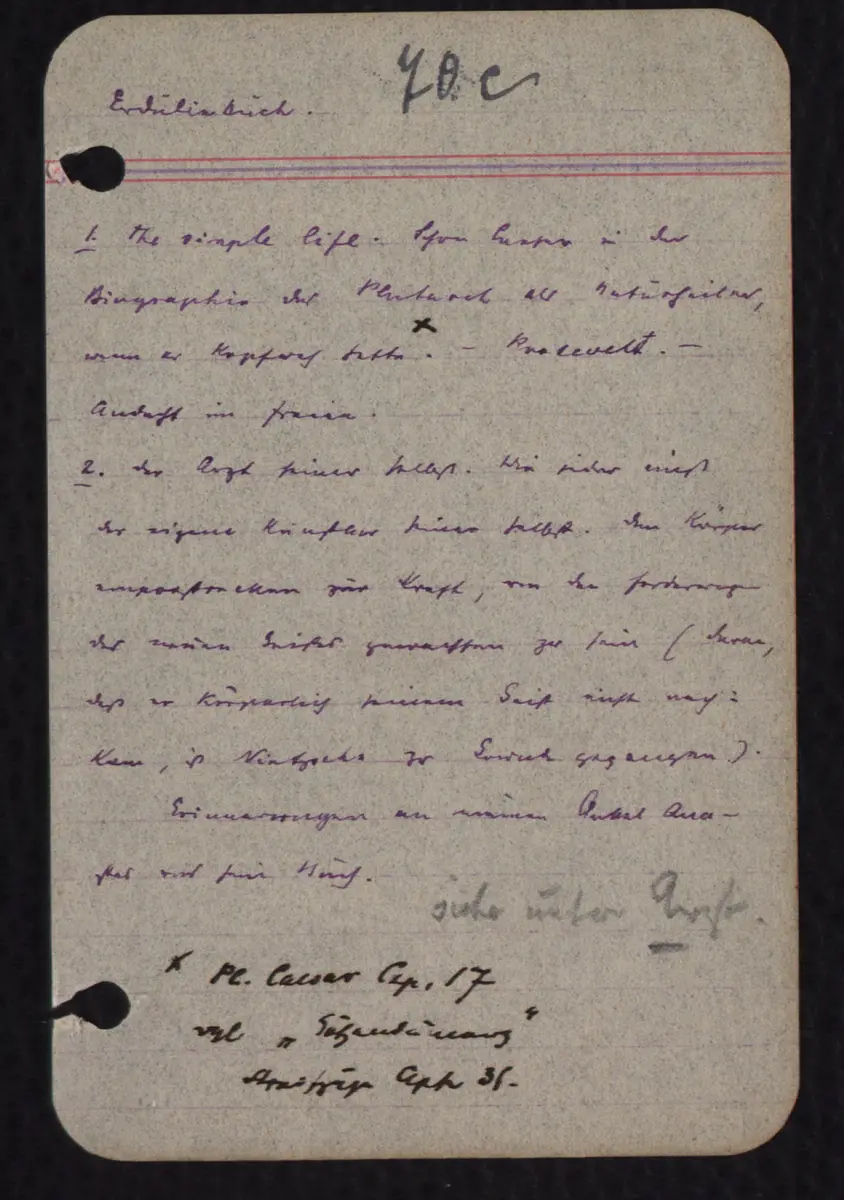 70 c
Erdulinbuch.
1. The simple life. Schon Caesar in der
Biographie des Plutarch als Naturheiler,
wenn er Kopfweh hatte. × – Roosevelt. –
Andacht im freien.
2. der Arzt seiner selbst. Wie jeder
der eigene Künstler seiner selbst. Den Körper
zur Kraft, um den forderungen
des neuen Geistes gewachsen zu sein (daran,
daß er körperlich seinem Geist nicht nach=
kam, ist Nietzsche zu Grunde gegangen).
Erinnerungen an meinen Onkel
und sein Buch.
siehe unter Arzt.
× Pl. Caesar Cap. 17
vgl „Götzendämmerg"
Streifzüge Aph 31.